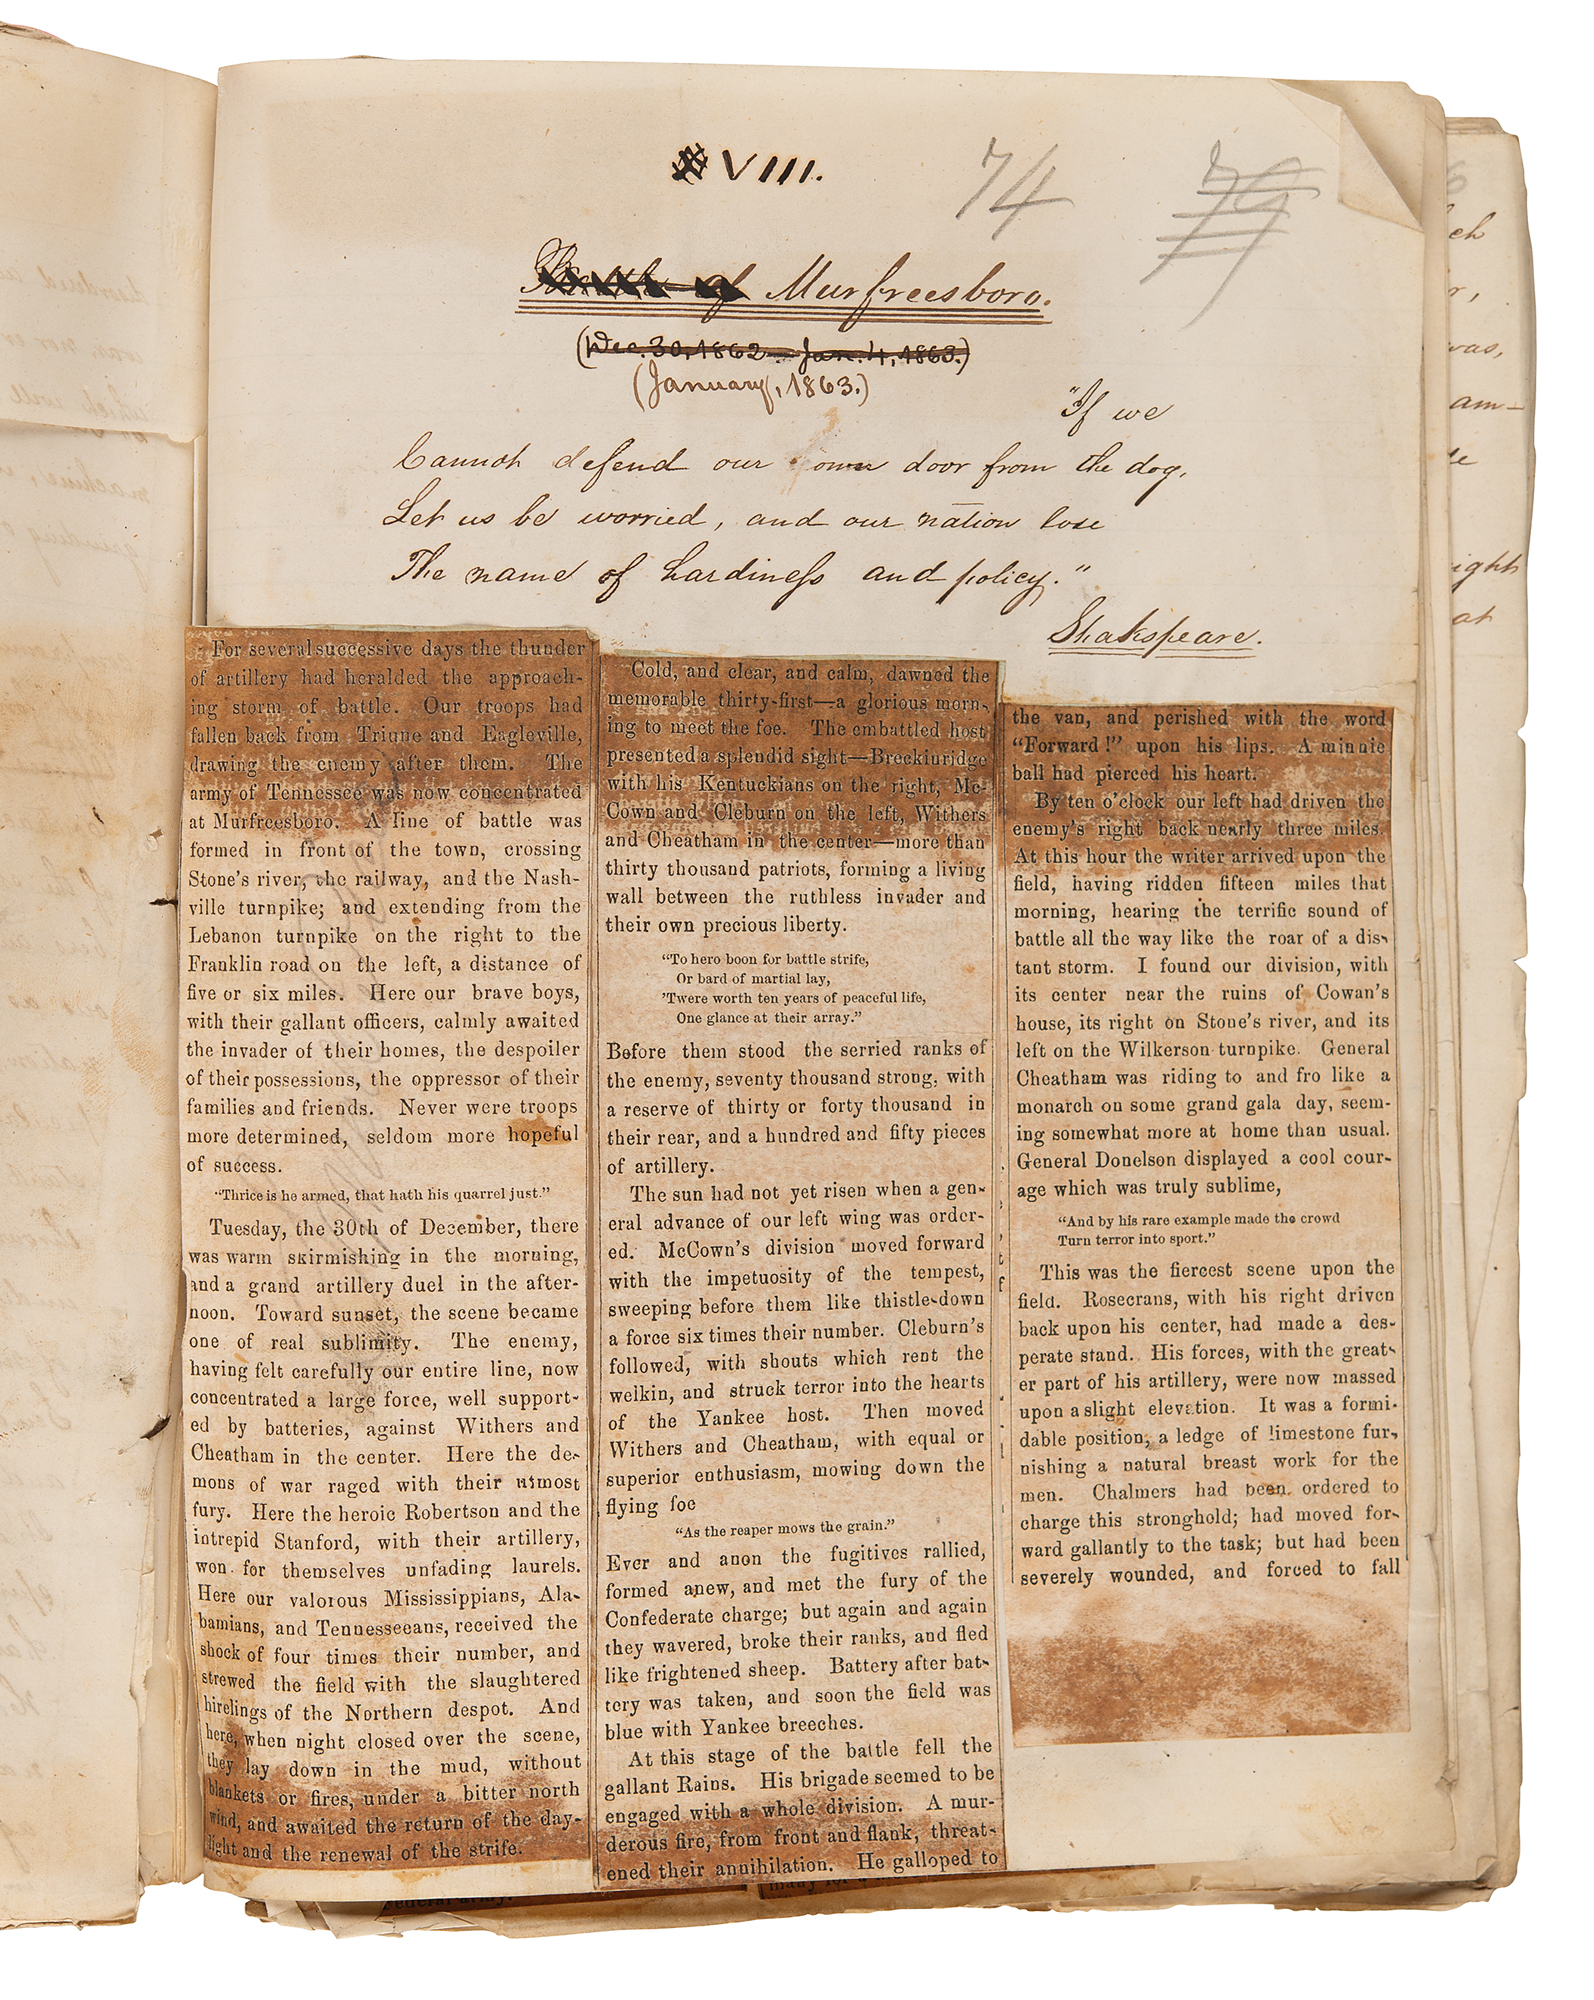 VIII.
74
79
Battle of Murfreesboro.
(Dec. 30, 1862 — Jan. 4, 1863.)
(January, 1863.)
"If we
Cannot defend our own door from the dog,
Let us be worried, and our nation lose
The name of hardiness and policy."
Shakspeare.
For several successive days the thunder
of artillery had heralded the approach-
ing storm of battle. Our troops had
fallen back from Triune and Eagleville,
drawing the enemy after them. The
army of Tennessee was now concentrated
at Murfreesboro. A line of battle was
formed in front of the town, crossing
Stone's river, the railway, and the Nash-
ville turnpike; and extending from the
Lebanon turnpike on the right to the
Franklin road on the left, a distance of
five or six miles. Here our brave boys,
with their gallant officers, calmly awaited
the invader of their homes, the despoiler
of their possessions, the oppressor of their
families and friends. Never were troops
more determined, seldom more hopeful
of success.
"Thrice is he armed, that hath his quarrel just."
Tuesday, the 30th of December, there
was warm skirmishing in the morning,
and a grand artillery duel in the after-
noon. Toward sunset, the scene became
one of real sublimity. The enemy,
having felt carefully our entire line, now
concentrated a large force, well support-
ed by batteries, against Withers and
Cheatham in the center. Here the de-
mons of war raged with their utmost
fury. Here the heroic Robertson and the
intrepid Stanford, with their artillery,
won for themselves unfading laurels.
Here our valorous Mississippians, Ala-
bamians, and Tennesseeans, received the
shock of four times their number, and
strewed the field with the slaughtered
hirelings of the Northern despot. And
here, when night closed over the scene,
they lay down in the mud, without
blankets or fires, under a bitter north
wind, and awaited the return of the day-
light and the renewal of the strife.
Cold, and clear, and calm, dawned the
memorable thirty-first—a glorious morn-
ing to meet the foe. The embattled host
presented a splendid sight—Breckinridge
with his Kentuckians on the right, Mc-
Cown and Cleburn on the left, Withers
and Cheatham in the center—more than
thirty thousand patriots, forming a living
wall between the ruthless invader and
their own precious liberty.
"To hero boon for battle strife,
Or bard of martial lay,
'Twere worth ten years of peaceful life,
One glance at their array."
Before them stood the serried ranks of
the enemy, seventy thousand strong, with
a reserve of thirty or forty thousand in
their rear, and a hundred and fifty pieces
of artillery.
The sun had not yet risen when a gen-
eral advance of our left wing was order-
ed. McCown's division moved forward
with the impetuosity of the tempest,
sweeping before them like thistle-down
a force six times their number. Cleburn's
followed, with shouts which rent the
welkin, and struck terror into the hearts
of the Yankee host. Then moved
Withers and Cheatham, with equal or
superior enthusiasm, mowing down the
flying foe
"As the reaper mows the grain."
Ever and anon the fugitives rallied,
formed anew, and met the fury of the
Confederate charge; but again and again
they wavered, broke their ranks, and fled
like frightened sheep. Battery after bat-
tery was taken, and soon the field was
blue with Yankee breeches.
At this stage of the battle fell the
gallant Rains. His brigade seemed to be
engaged with a whole division. A mur-
derous fire, from front and flank, threat-
ened their annihilation. He galloped to
the van, and perished with the word
"Forward!" upon his lips. A minnie
ball had pierced his heart.
By ten o'clock our left had driven the
enemy's right back nearly three miles.
At this hour the writer arrived upon the
field, having ridden fifteen miles that
morning, hearing the terrific sound of
battle all the way like the roar of a dis-
tant storm. I found our division, with
its center near the ruins of Cowan's
house, its right on Stone's river, and its
left on the Wilkerson turnpike. General
Cheatham was riding to and fro like a
monarch on some grand gala day, seem-
ing somewhat more at home than usual.
General Donelson displayed a cool cour-
age which was truly sublime,
"And by his rare example made the crowd
Turn terror into sport."
This was the fiercest scene upon the
field. Rosecrans, with his right driven
back upon his center, had made a des-
perate stand. His forces, with the great-
er part of his artillery, were now massed
upon a slight elevation. It was a formi-
dable position, a ledge of limestone fur-
nishing a natural breast work for the
men. Chalmers had been ordered to
charge this stronghold; had moved for-
ward gallantly to the task; but had been
severely wounded, and forced to fall